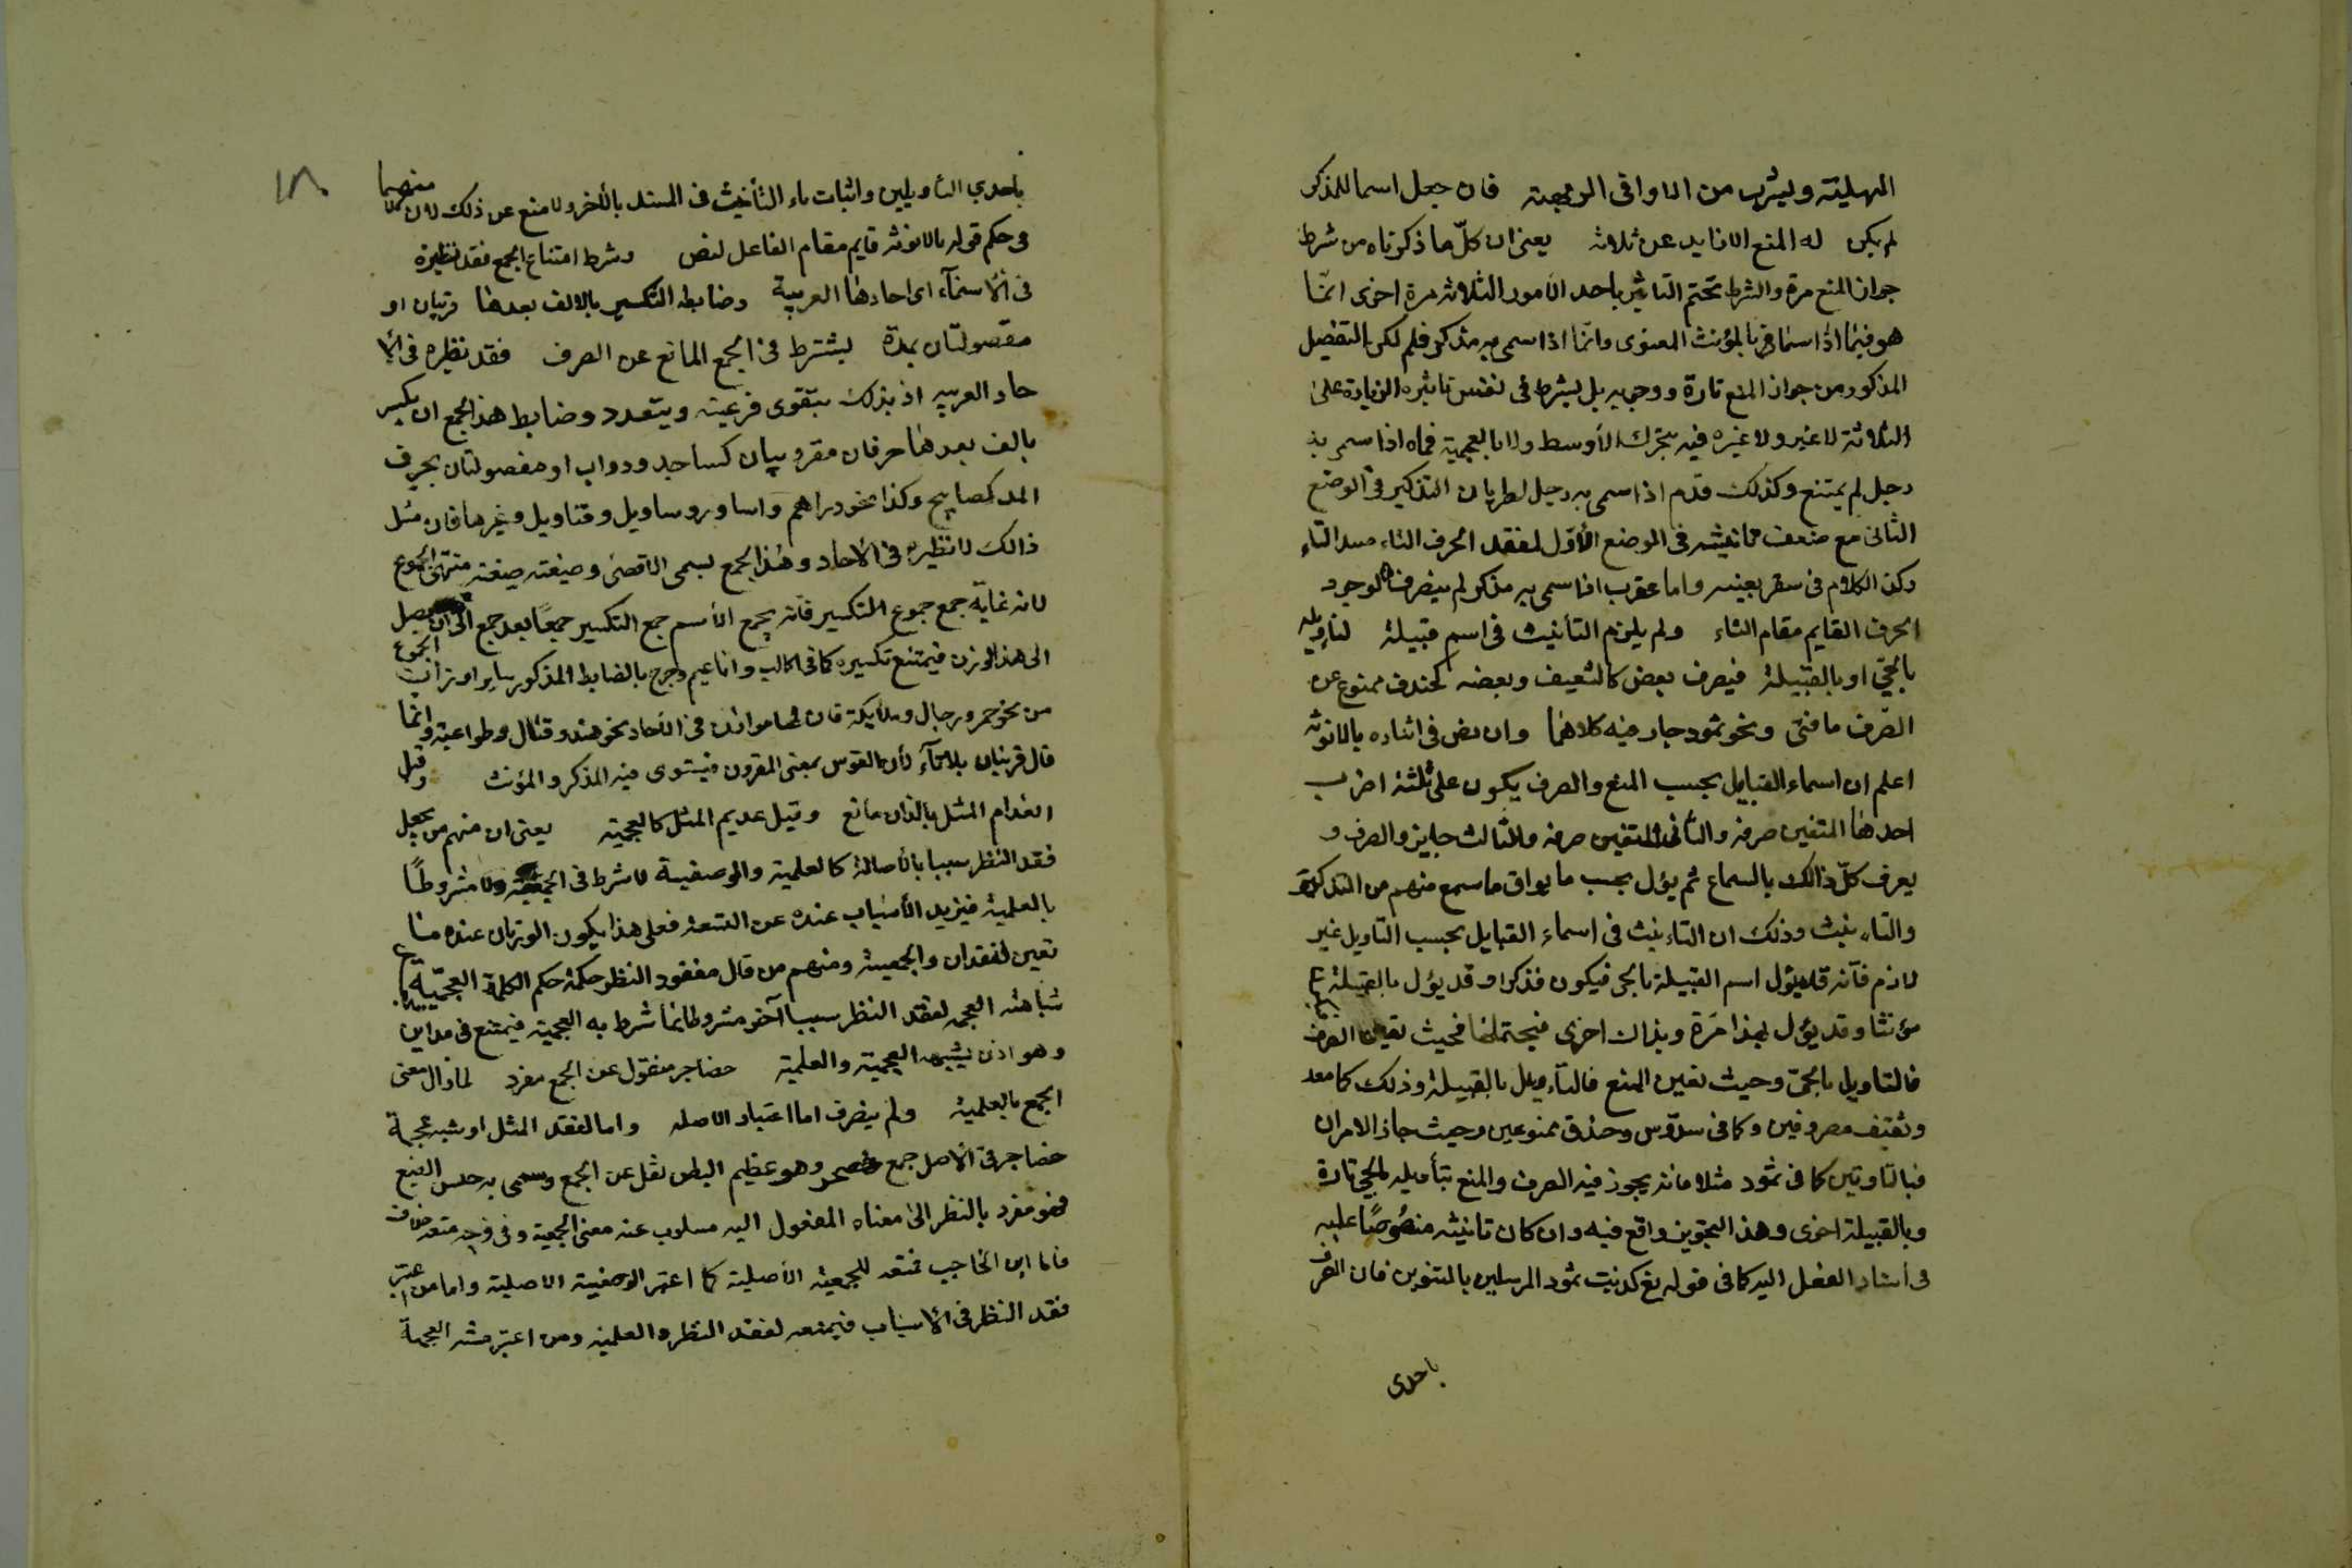 المهلية وليثرب من الاواقى الوجعة فان جعل اسما للمذكر
لم يكن له المنع الازايد عن ثلاثه يعنى ان كلّ ما ذكرناه من شرط
جواز المنع مرة والشرط تحتم التاثير باحد الأمور الثلاثه مرة اخرى انّما
هو فيما اذا سما قربا لمؤنث المعنوى وانّما اذا سمى به مذكر فلم لكن التفضيل
المذكور من جواز المنع تارة ووجوبه بل يشرط فى نفس تاثيره الزيادة على
الثلاثة لا غير ولا غيره فيه بتحرك الأوسط ولا بالعجمية فماه اذا سمى بذ
رجل لم يمتنع وكذلك قدم اذا سمى به رجل لطريان التذكير فى الوضع
الثانى مع ضعف تانيثه فى الموضع الأوّل لفقد الحرف الثاء مسد التاء
وكذ الكلام فى سقر بعينه واما عقرب اذا سمى به مذكر لم ينصرف لوجود
الحرف القايم مقام الثاء ولم يلزم التأنيث فى اسم قبيلة لتاويله
بالحىّ او بالقبيلة فيصرف بعض كالثقيف وبعضه كخندف ممنوع عن
الصّرف ما فتى ونحو ثمود جار فيه كلاهما وان نص فى اثناده بالانوثه
اعلم ان اسماء القبايل بحسب المنع والصرف يكون على ثلثة اضرب
احدها المتفين صرفه والثانى المتفين صرفه والثالث جايز والصرف و
يعرف كلّ ذالك بالسماع ثم يؤل بحسب ما يوافق ما سمع منهم من التذكير
والتاء نيث وذلك ان التاء نيث فى اسماء القبايل بحسب التاويل غير
لازم فآنه قد يؤل اسم القبيلة بالحى فيكون فذكرا وقد يؤل بالقبيلة
مؤنثا وقد يؤل بهذا مَرة وبذاك اخرى فيحتملها فحيث تعين الصرف
فالتاويل بالحىّ وحيث تعين المنع فالتاءويل بالقبيلة وذلك كما معد
وثقيف مصروفين وكما فى سدّوس وخذف ممنوعين وحيث جاز الامران
فبالتاوتين كما فى ثمود مثلا فانه يجوز فيه الصرف والمنع بتأميله بالحى تارة
وبالقبيلة اخرى وهذ التجوين واقع فيه وان كان تانيثه منصُوصًا عليه
فى اسناد الفعل اليه كما فى قوله تع كذبت ثمود المرسلين بالتنوين فان الصرف
باحدى
١٨
باحدي التاويلين واثبات تاء التأنيث فى المسند بالأخر ولا منع عن ذلك لان منصبها
فى حكم قوله بالانوثه قايم مقام الفاعل لنص وشرط امتناع الجمع فقد نظيرة
فى الأسمآء اى احادها العربية وضابطه التكسير بالالف بعدها قرتيان او
مفصولتان بمدة يشترط فى الجمع المانع عن الصرف فقد نظيره فى الا
حاد العربيه اذ بذلك يتقوى فرعيته ويتعدد وضابط هذ الجمع ان يكسر
بالف بعدها حرفان مقروبيان كمساجد ودواب او مفصولتان بحرف
المد كمصابيح وكذا نحو دراهم واساور وساويل وقناويل وغيرها فان مثل
ذالك لا نظيره فى الأحاد وهٰذ الجمع يسمى الاقصى وصيغته صيغته منتهى الجموع
لانه غاية جمع جموع التكسير فآنه يجمع الأسم جمع التكسير جمعًا بعد جمع الى ان يصل
الى هذ الوزن فيمتنع تكسيره كما فى اكالب واناعيم وخرج بالضابط المذكور ساير اوزان الجموع
من نحو حمر ورجال وملايكة فان لها موازن فى الآحاد نحو هند وقتال وطواعية وانّما
قال قرتيان بلاتآء لأن القوس بمعنى المقرون فيستوى فيه المذكر والمؤنث وقيل
انعدام المثل بالذان مانع وقيل عديم المثل كالعجمية يعنى ان منهم من يجعل
فقد النظر سببا بالأصالة كالعلمية والوصفية لا شرط فى الجمعية ولا مشروطًا
بالعلمية فيزيد الأسباب عنده عن التسعة فعلى هذا يكون الوزنان عنده منا
تعين لفقدان والجمعية ومنهم من قال مفقود النظر حكمة حكم الكلمة العجمّية
شابهته العجمة لفقد النظر سببا آخر مشروطا بما شرط به العجمية فيمتنع فى مداين
وهو اذن يشبه العجمية والعلمية حضاجر منقول عن الجمع مفرد لما زال معنى
الجمع بالعلمية ولم ينصرف اما اعتبار الاصله واما لفقد المثل او شبه عجمة
حضاجر فى الأصل جمع حضجر وهو عظيم البطن نقل عن الجمع وسمى به جنس الضبع
فهو مفرد بالنظر الى معناه المنقول اليه مسلوب عنه معنى الجمعية وفى وجه منعه خلاف
فاما ابن الحاجب فمنعه للجمعية الأصلية كما اعتبر الوصفية الاصلية واما من اعتبر
فقد النظر فى الأسباب فيمنعه لفقد النظر والعلمية ومن اعتبر مشبه العجمة